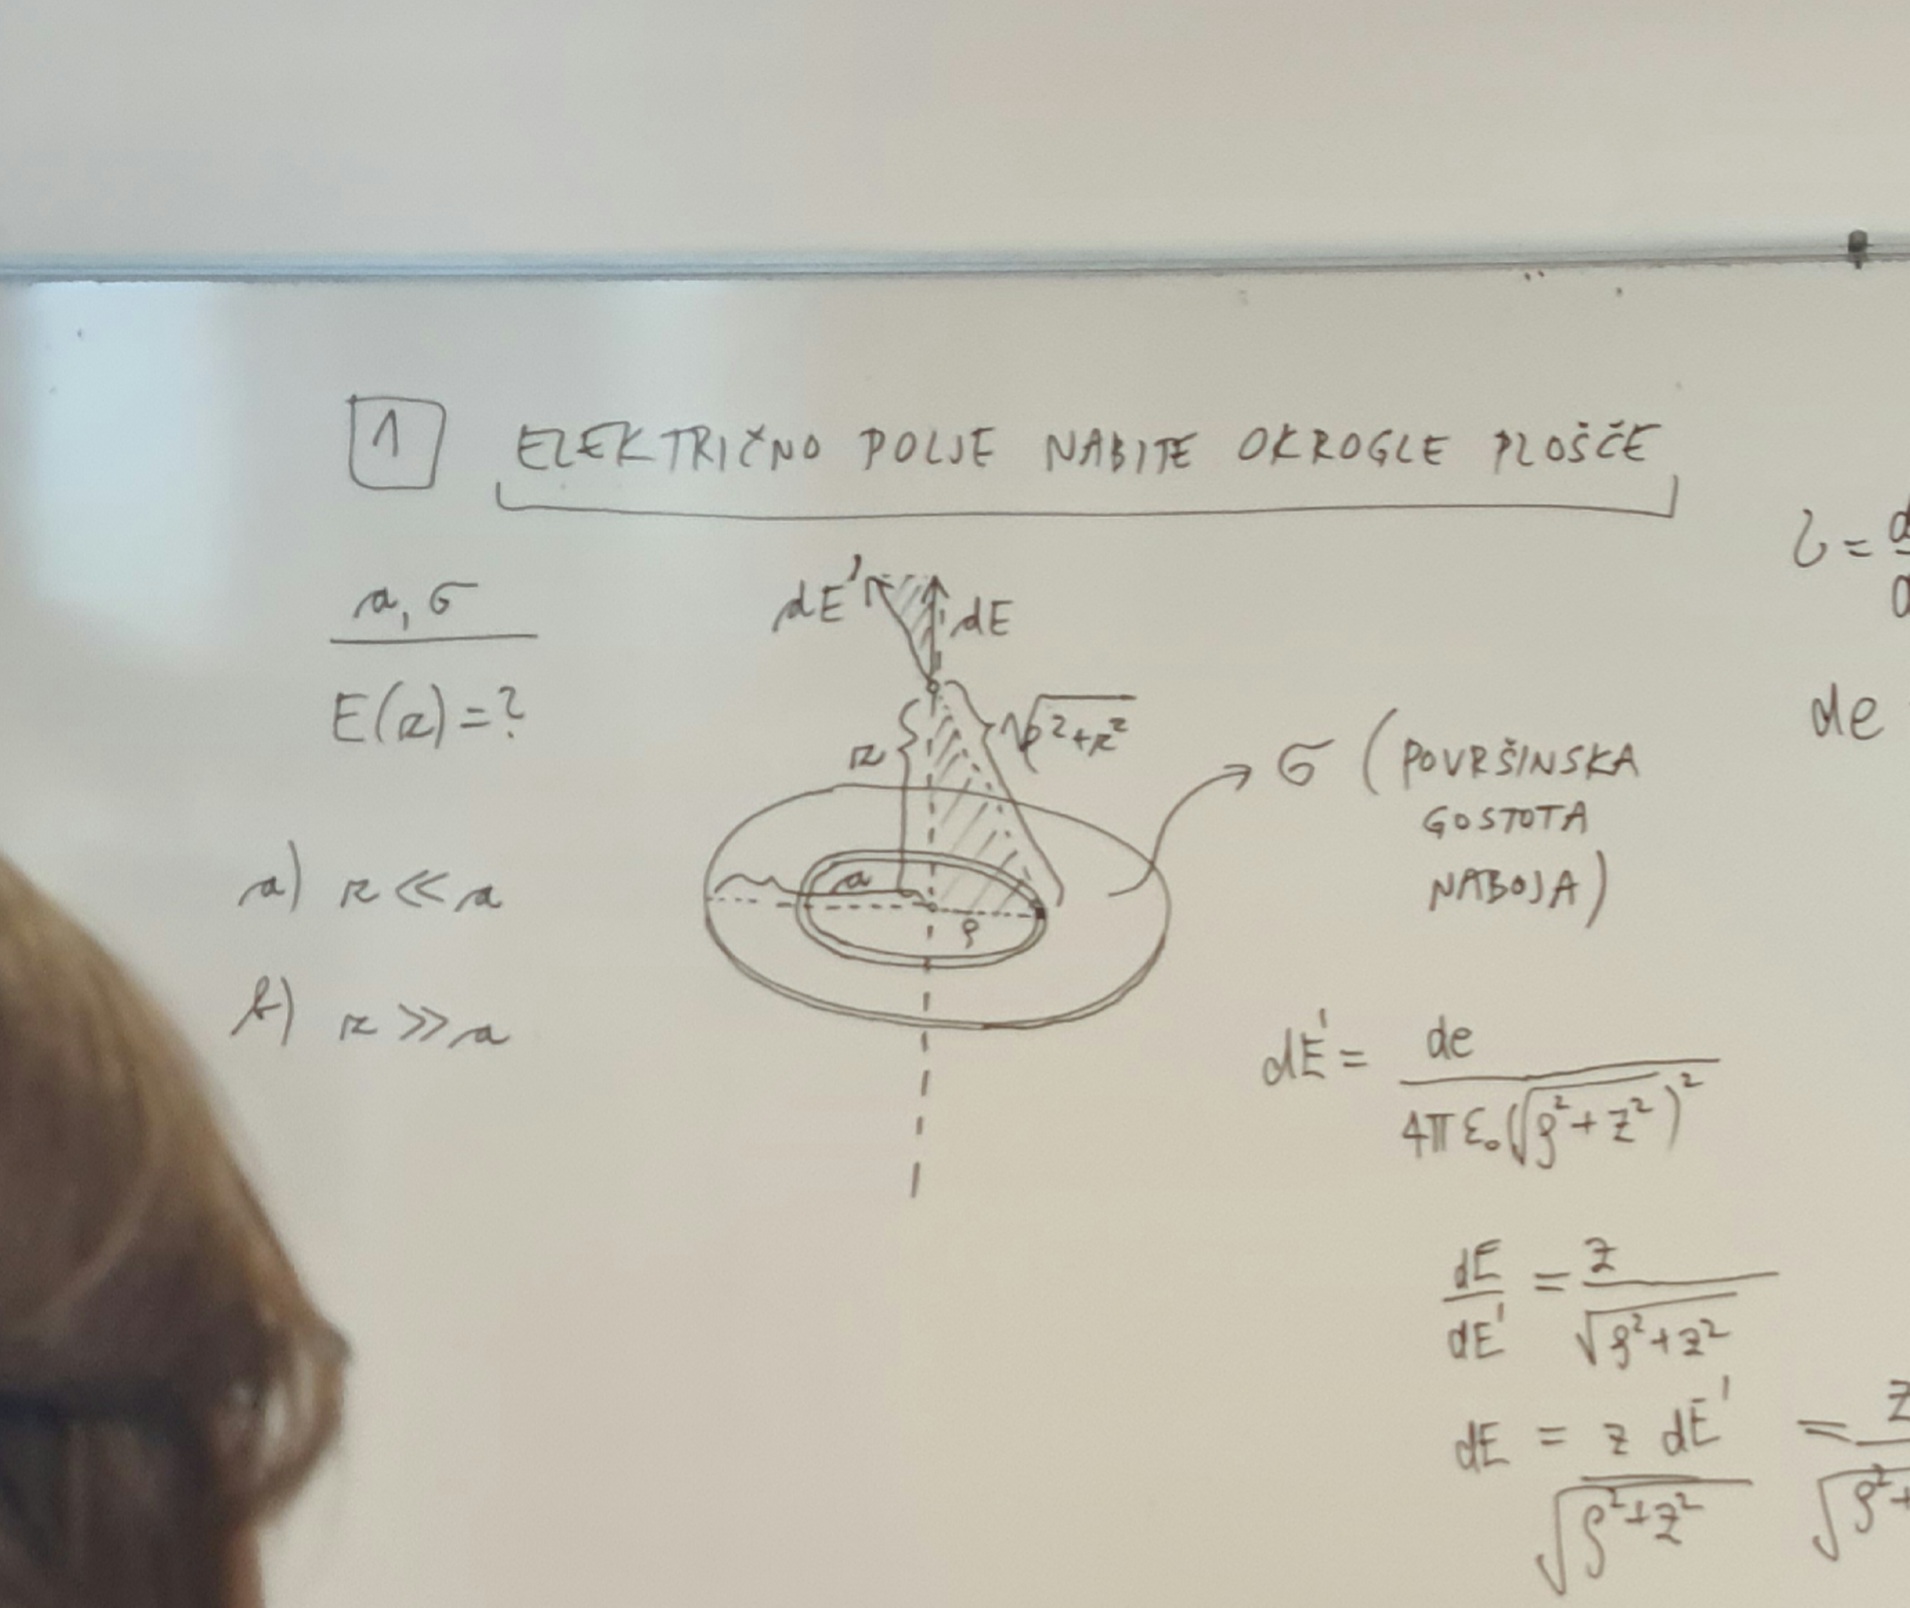 1 ELEKTRIČNO POLJE NABITE OKROGLE PLOŠČE
a, σ
E(z)=?
a) z << a
b) z >> a
dE' dE
√ρ²+z²
z
a
ρ
σ (POVRŠINSKA
GOSTOTA
NABOJA)
de
dE' = de / 4πε₀(√ρ²+z²)²
dE / dE' = z / √ρ²+z²
dE = z dE' / √ρ²+z² =